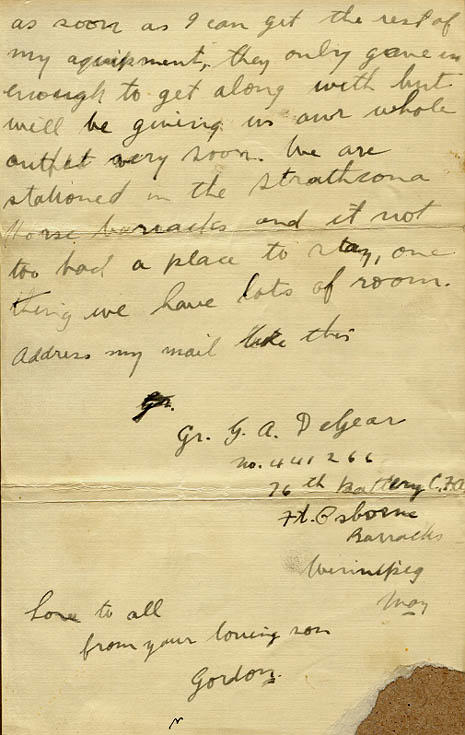 as soon as I can get the rest of
my aquipment, they only gave us
enough to get along with but
will be giving us our whole
outfit very soon. We are
stationed in the Strathcona
Horse barracks and it not
too bad a place to stay, one
thing we have lots of room.
Address my mail like this
Gr.
Gr. G. A. DeGear
no. 441266
76th Battery C.F.A
Ft. Osborne
Barracks
Winnipeg
Love to all
from your loving son
Gordon.